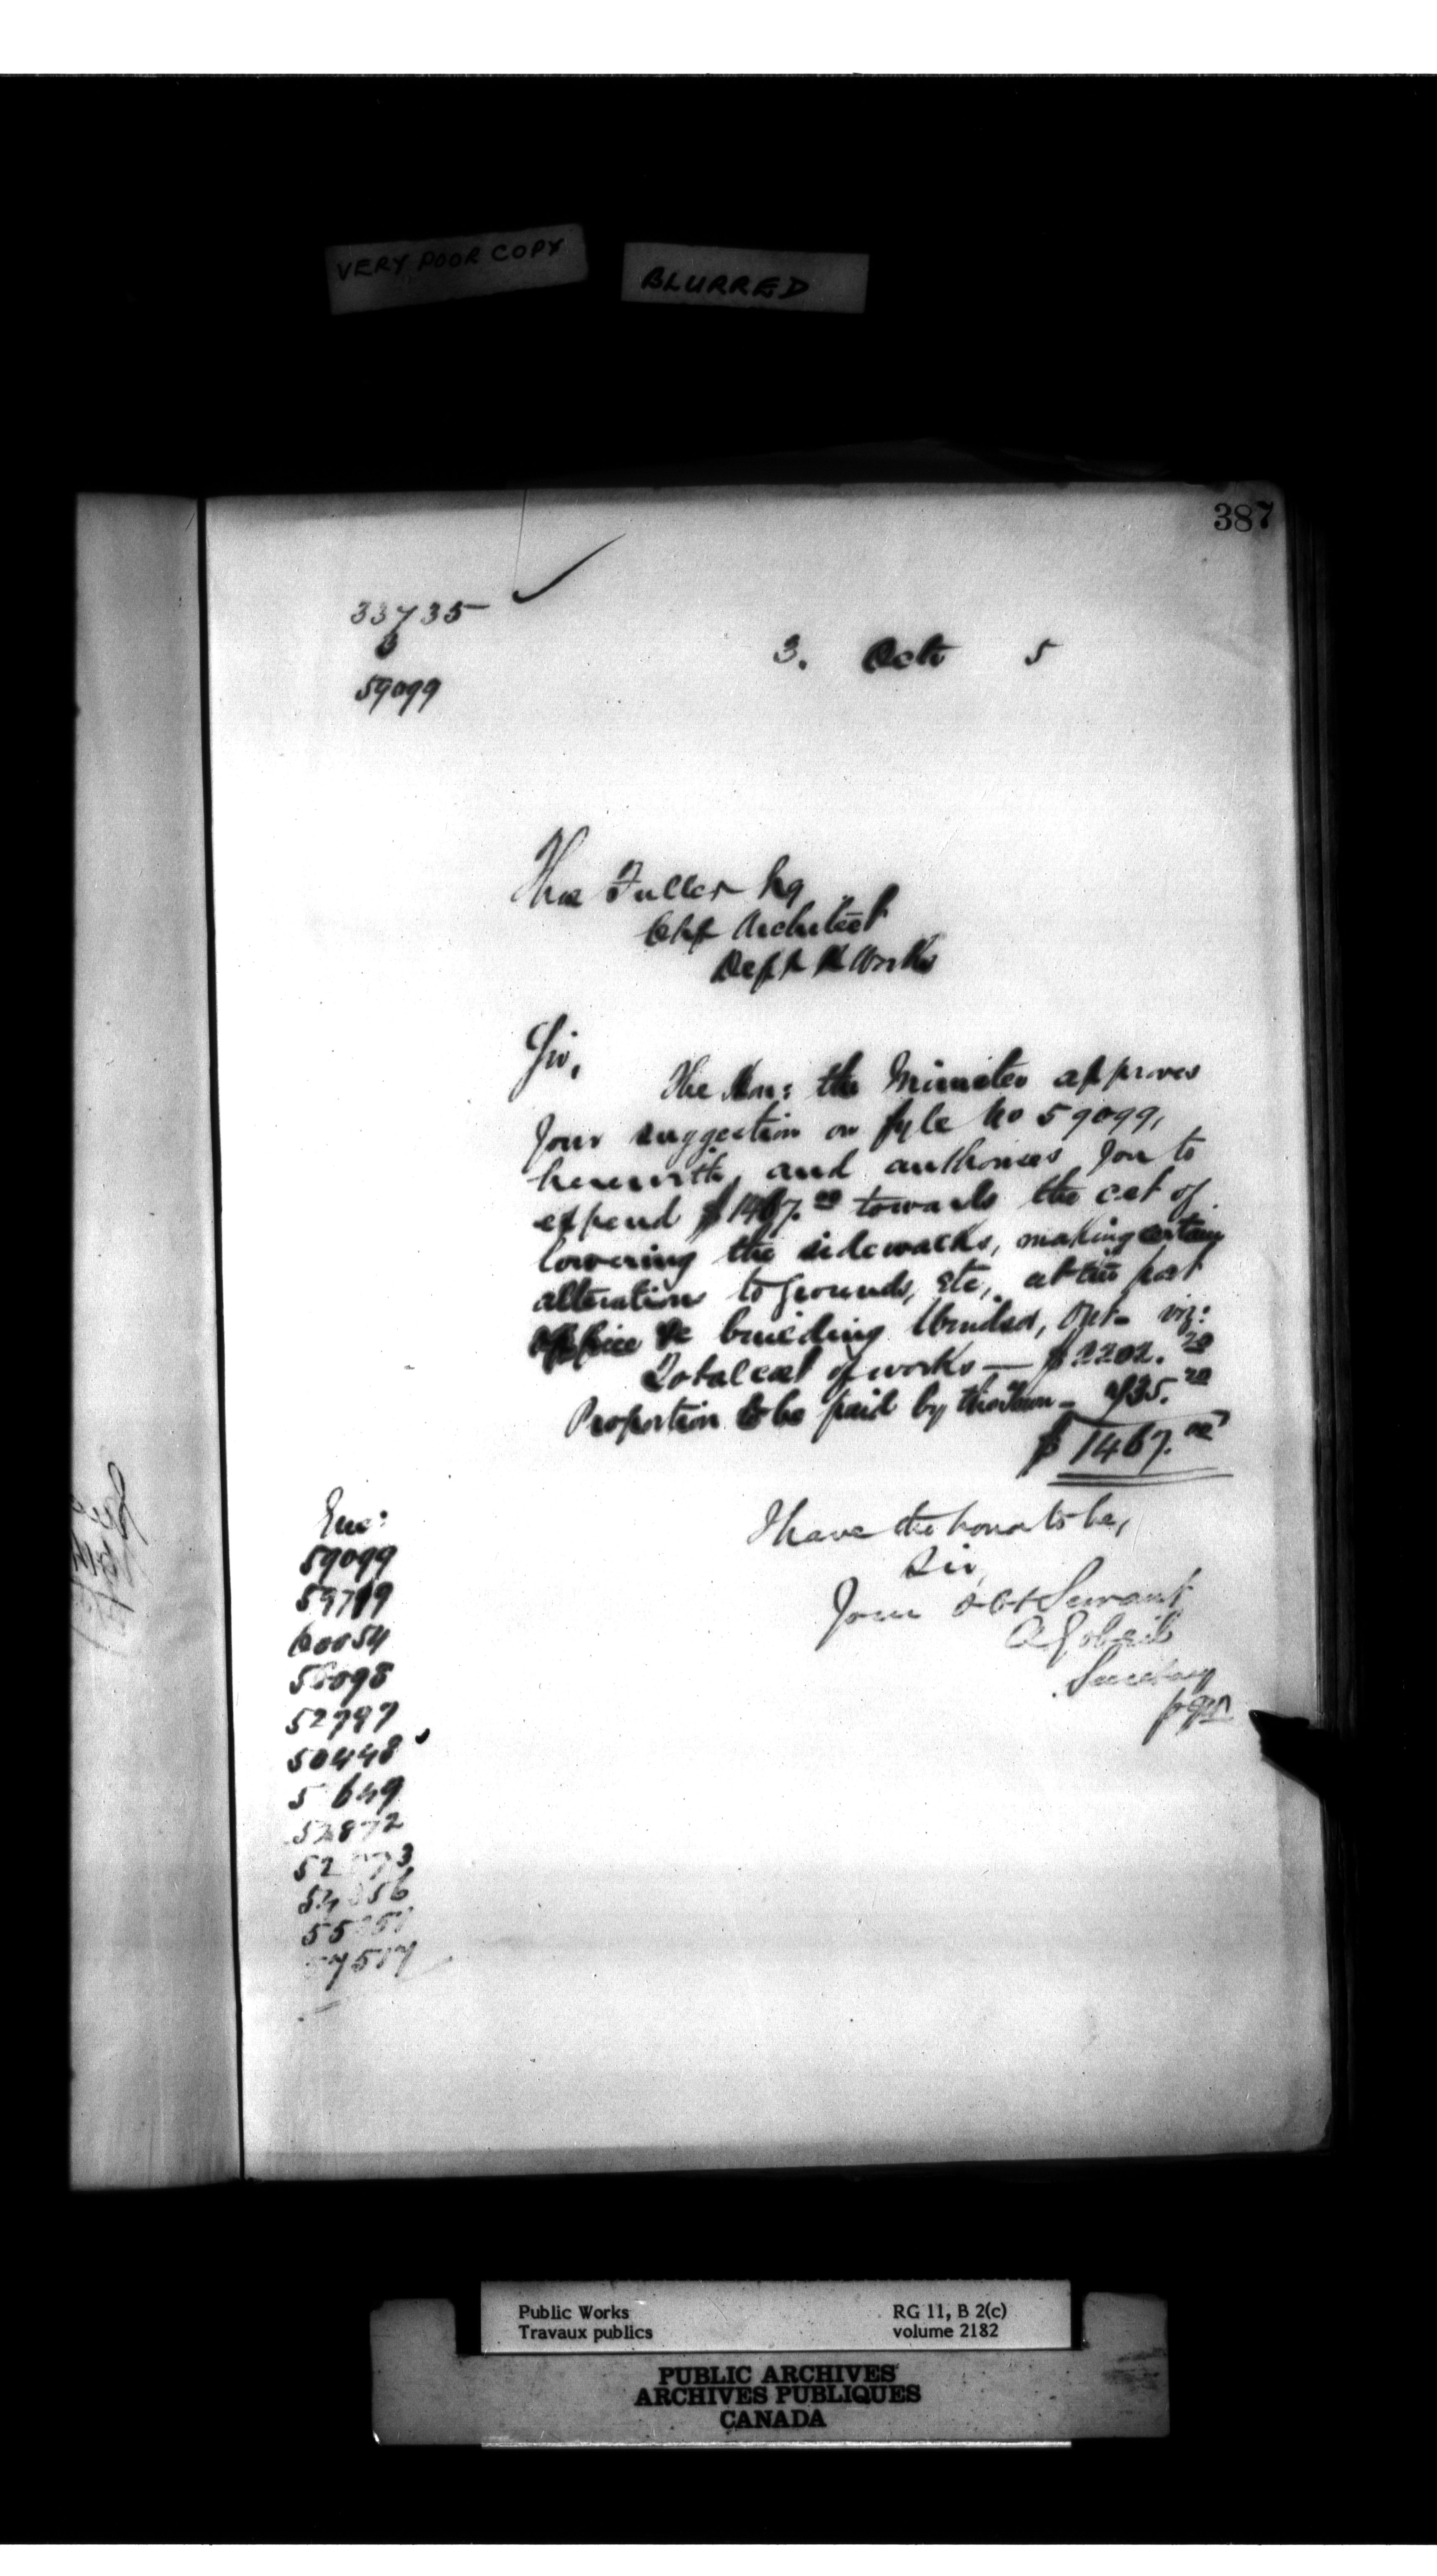 VERY POOR COPY
BLURRED
387
33735
3
59099
3. Octr 5
Thos Fuller Esq
Chf Architect
Dept P Works
Sir,
The Hon: the Minister approves
your suggestion on fyle No 59099,
herewith, and authorises you to
expend $1467.00 towards the cost of
lowering the sidewalks, making certain
alterations to grounds, etc, at the post
office &c building Windsor, Ont- viz:
Total cost of works — $2202.20
Proportion to be paid by the Town - 735.20
$1467.00
I have the honor to be,
Sir,
Your obt Servant
A Gobeil
Secretary
Enc:
59099
59719
60054
58098
52797
50448
5 649
52872
52 73
54 56
55 51
57517
Public Works
Travaux publics
RG 11, B 2(c)
volume 2182
PUBLIC ARCHIVES
ARCHIVES PUBLIQUES
CANADA